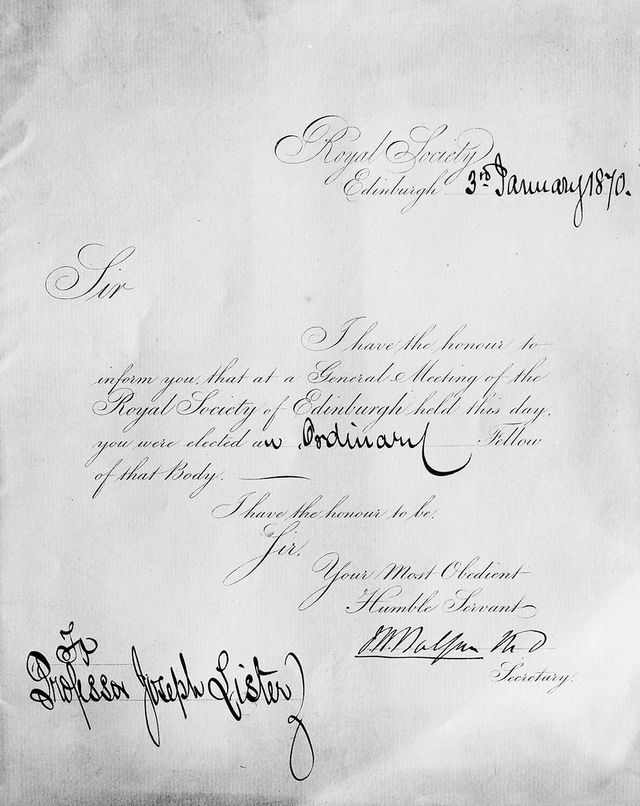 Royal Society
Edinburgh 3rd January 1870.
Sir
I have the honour to
inform you, that at a General Meeting of the
Royal Society of Edinburgh held this day,
you were elected an Ordinary Fellow
of that Body.
I have the honour to be,
Sir,
Your Most Obedient
Humble Servant
J. H. Balfour M D
Secretary.
To
Professor Joseph Lister